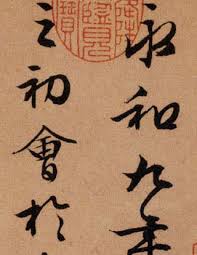 永和九年
之初會於